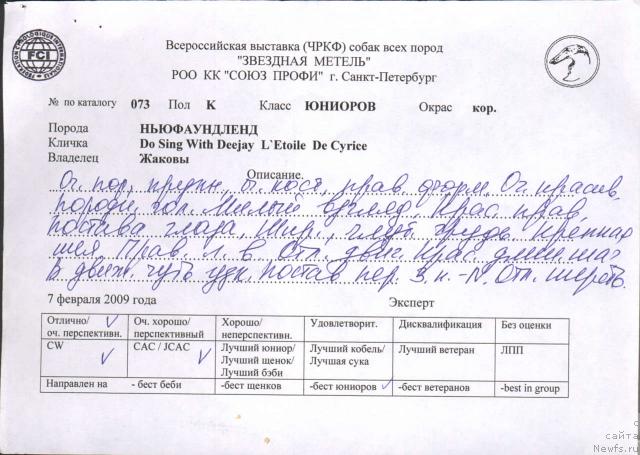 FEDERATION CYNOLOGIQUE INTERNATIONALE
FCI
Всероссийская выставка (ЧРКФ) собак всех пород
"ЗВЕЗДНАЯ МЕТЕЛЬ"
РОО КК "СОЮЗ ПРОФИ" г. Санкт-Петербург
№ по каталогу 073 Пол К Класс ЮНИОРОВ Окрас кор.
Порода НЬЮФАУНДЛЕНД
Кличка Do Sing With Deejay L`Etoile De Cyrice
Владелец Жаковы
Описание.
Оч. пор., крупн., кост, прав. форм. Оч. красив.
породн. гол. Милый взгляд. Крас. прав.
постава глаза. Шир., глуб. грудь. Крепкая
шея. Прав. л. в. Отл. движ. Крас. длин. шаг
В движ. чуть узк. постав пер. З. к. -N. Отл. шерсть.
7 февраля 2009 года Эксперт
Отлично/ оч. перспективн. Оч. хорошо/ перспективный Хорошо/ неперспективн. Удовлетворит. Дисквалификация Без оценки
CW CAC / JCAC Лучший юниор/ Лучший щенок/ Лучший бэби Лучший кобель/ Лучшая сука Лучший ветеран ЛПП
Направлен на - бест беби -бест щенков -бест юниоров -бест ветеранов -best in group
с
сайта
Newfs.ru